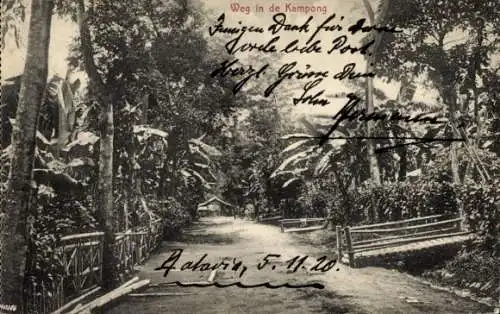 Weg in de Kampong
Innigen Dank für deine
liebe Post.
Herzl. Grüsse Dein
Sohn Hermann
Batavia, 5.11.20.